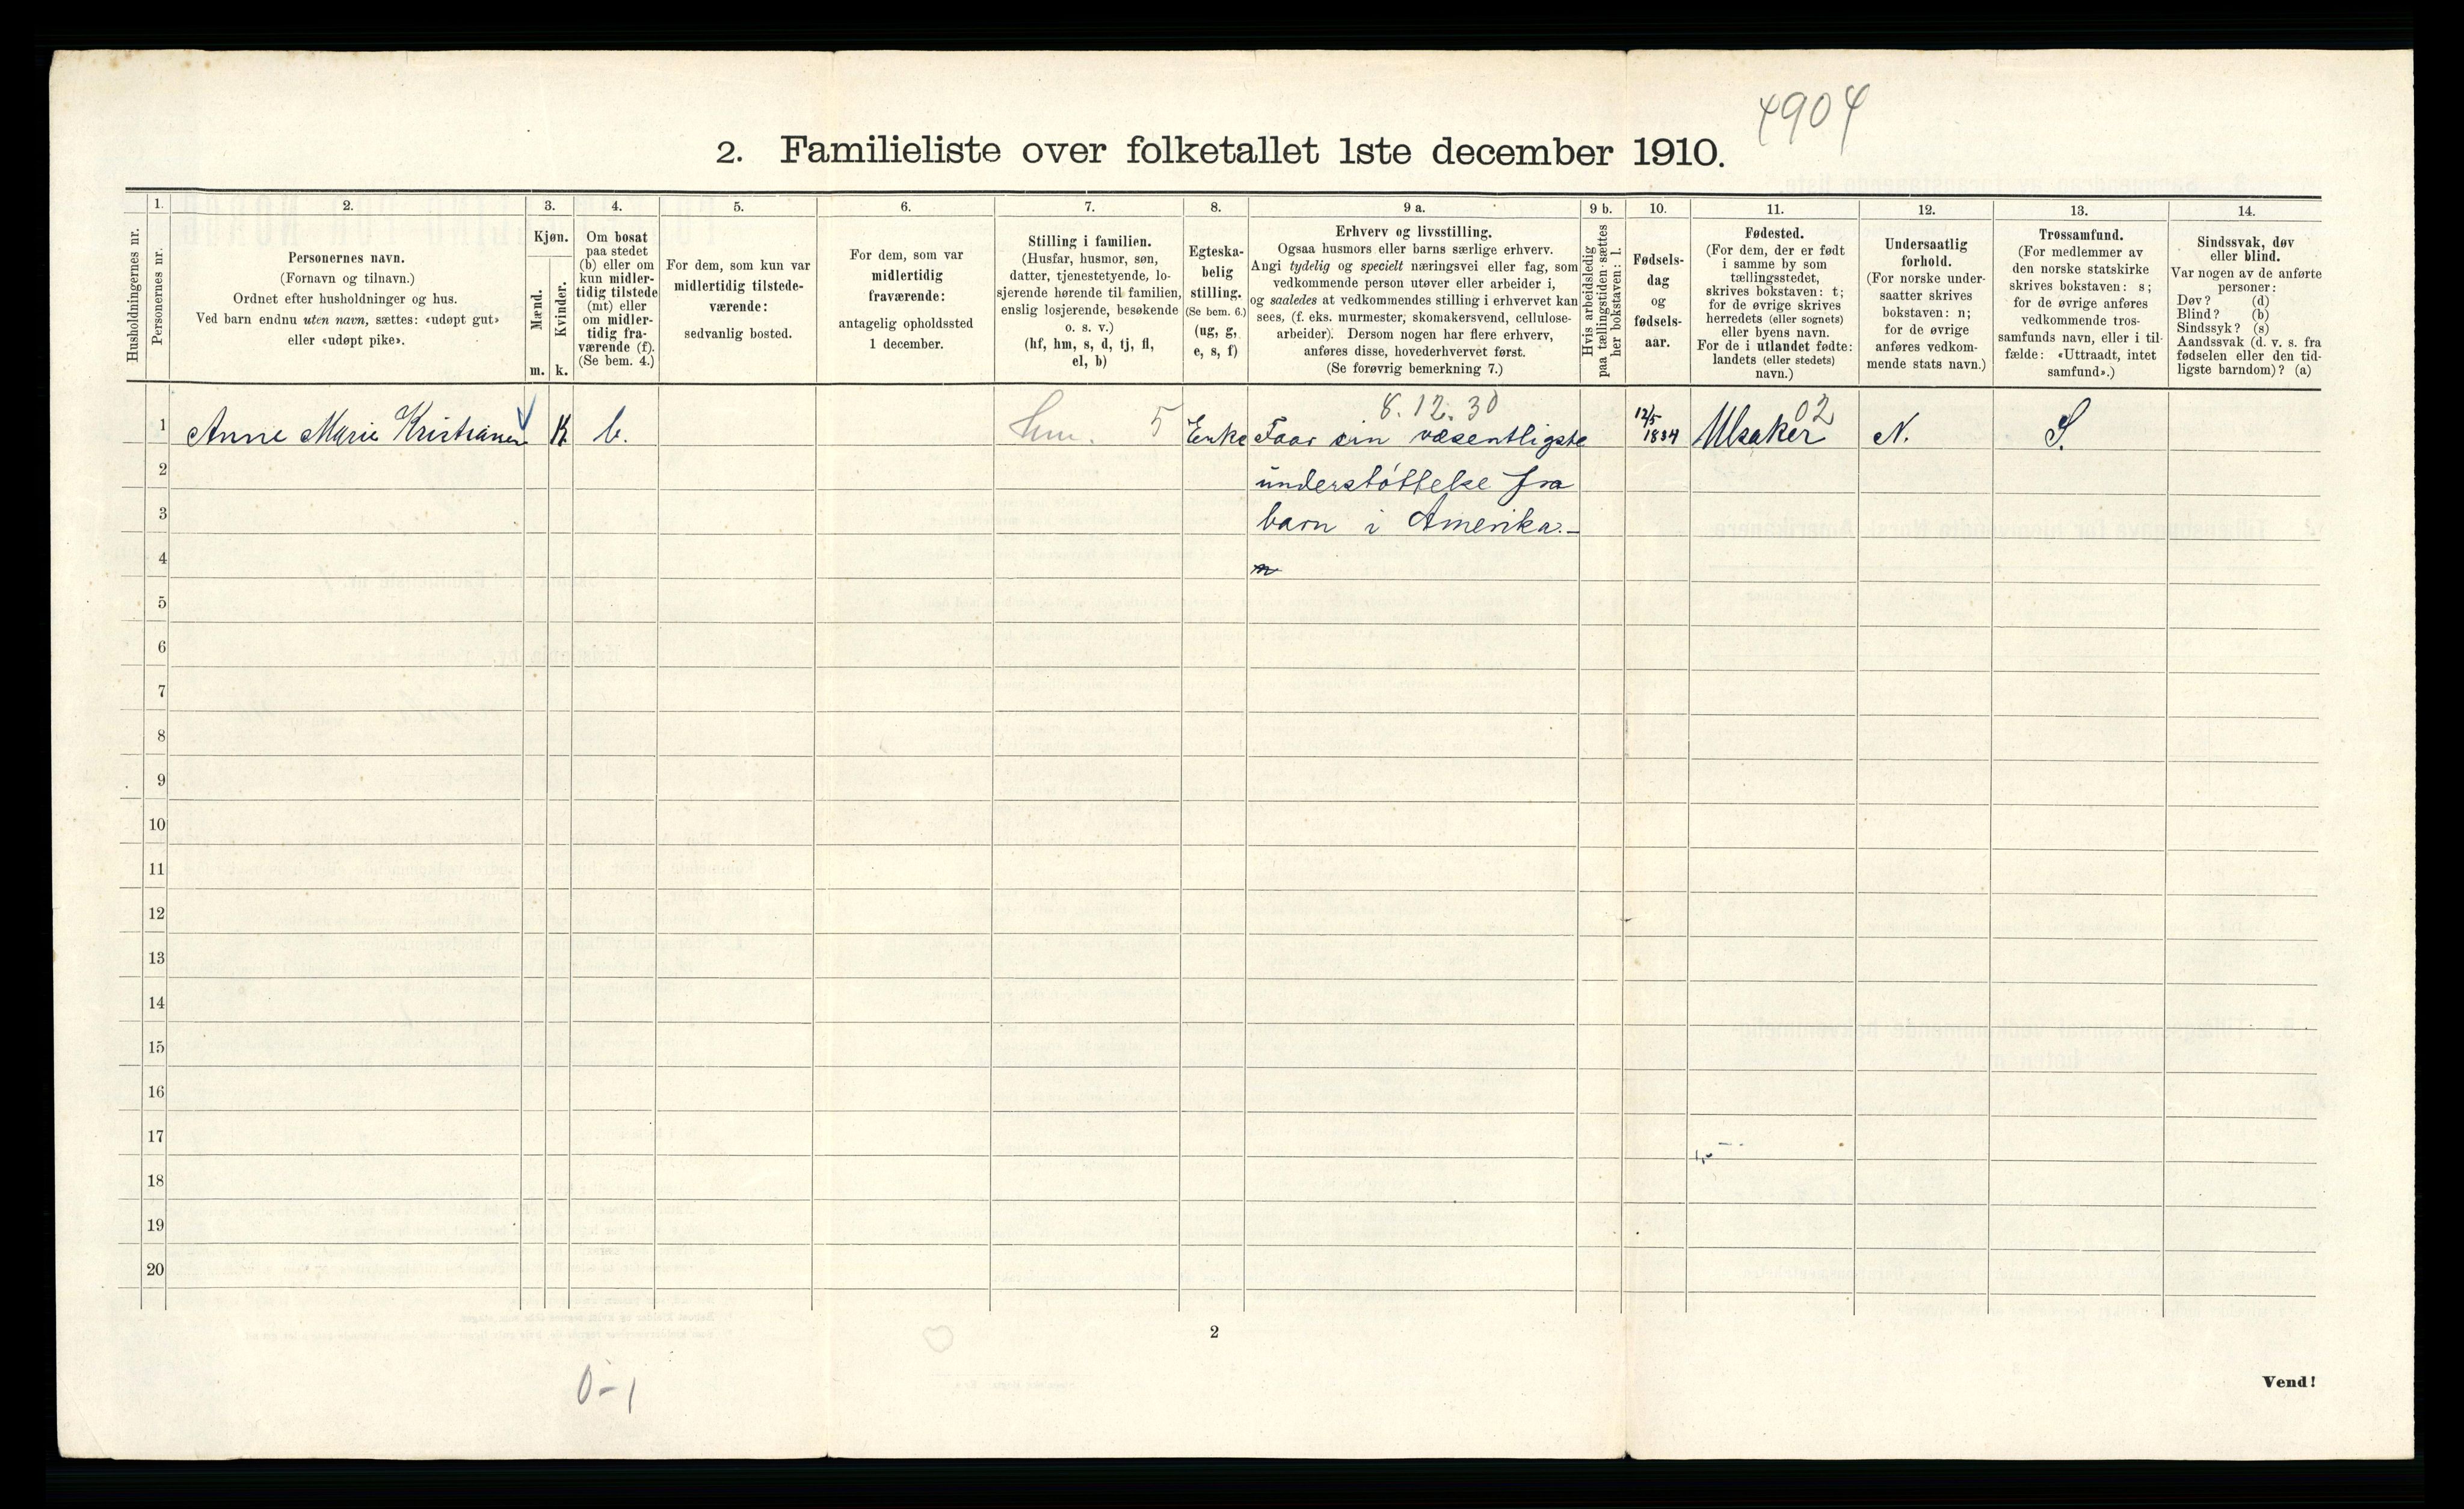 4904
2. Familieliste over folketallet 1ste december 1910.
Husholdningernes nr.
1.
Personernes nr.
2.
Personernes navn.
(Fornavn og tilnavn.)
Ordnet efter husholdninger og hus.
Ved barn endnu uten navn, sættes: «udøpt gut»
eller «udøpt pike».
3.
Kjøn.
Mænd.
Kvinder.
m.
k.
4.
Om bosat
paa stedet
(b) eller om
kun midler-
tidig tilstede
(mt) eller
om midler-
tidig fra-
værende (f).
(Se bem. 4.)
5.
For dem, som kun var
midlertidig tilstede-
værende:
sedvanlig bosted.
6.
For dem, som var
midlertidig
fraværende:
antagelig opholdssted
1 december.
7.
Stilling i familien.
(Husfar, husmor, søn,
datter, tjenestetyende, lo-
sjerende hørende til familien,
enslig losjerende, besøkende
o. s. v.)
(hf, hm, s, d, tj, fl,
el, b)
8.
Egteska-
belig
stilling.
(Se bem. 6.)
(ug, g,
e, s, f)
9 a.
Erhverv og livsstilling.
Ogsaa husmors eller barns særlige erhverv.
Angi tydelig og specielt næringsvei eller fag, som
vedkommende person utøver eller arbeider i,
og saaledes at vedkommendes stilling i erhvervet kan
sees, (f. eks. murmester, skomakersvend, cellulose-
arbeider). Dersom nogen har flere erhverv,
anføres disse, hovederhvervet først.
(Se forøvrig bemerkning 7.)
9 b.
Hvis arbeidsledig
paa tællingstiden sættes
her bokstaven: l.
10.
Fødsels-
dag
og
fødsels-
aar.
11.
Fødested.
(For dem, der er født
i samme by som
tællingsstedet,
skrives bokstaven: t;
for de øvrige skrives
herredets (eller sognets)
eller byens navn.
For de i utlandet fødte:
landets (eller stedets)
navn.)
12.
Undersaatlig
forhold.
(For norske under-
saatter skrives
bokstaven: n;
for de øvrige
anføres vedkom-
mende stats navn.)
13.
Trossamfund.
(For medlemmer av
den norske statskirke
skrives bokstaven: s;
for de øvrige anføres
vedkommende tros-
samfunds navn, eller i til-
fælde: «Uttraadt, intet
samfund».)
14.
Sindssvak, døv
eller blind.
Var nogen av de anførte
personer:
Døv? (d)
Blind? (b)
Sindssyk? (s)
Aandssvak (d. v. s. fra
fødselen eller den tid-
ligste barndom)? (a)
8.12.30
1 Anne Marie Kristiansen K. b. hm. 5 Enke Faar sin væsentligste 12/5 1834 Ulsaker 02 N. S.
2 understøttelse fra
3 barn i Amerika.-
4
5
6
7
8
9
10
11
12
13
14
15
16
17
18
19
20
2
0-1
Vend!